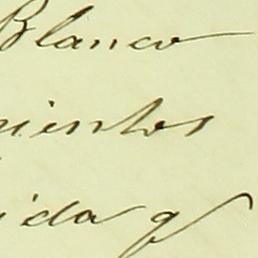 Blanco
ientos
ida q